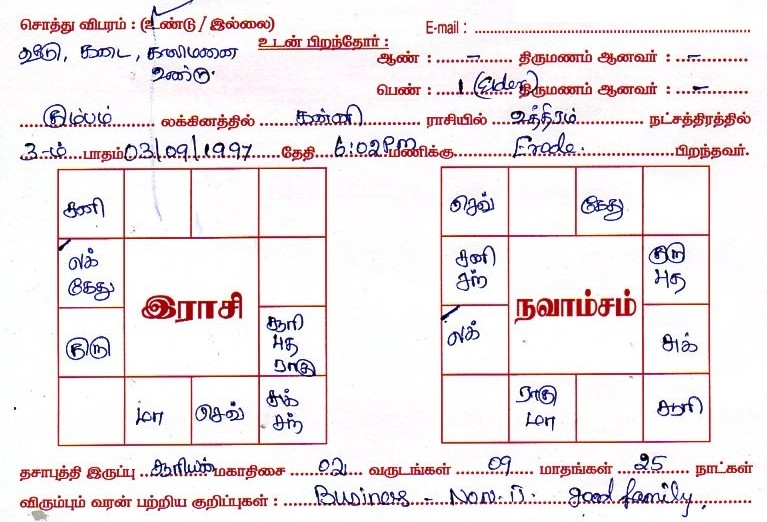 சொத்து விபரம் : (உண்டு / இல்லை)
E-mail :
வீடு, கடை, காலிமனை உண்டு.
உடன் பிறந்தோர் :
ஆண் : – திருமணம் ஆனவர் : –
பெண் : 1 (Elder) திருமணம் ஆனவர் : –
கும்பம் லக்கினத்தில் கன்னி ராசியில் உத்திரம் நட்சத்திரத்தில்
3-ம் பாதம் 03/09/1997 தேதி 6:02PM மணிக்கு Erode. பிறந்தவர்.
சனி
லக்
கேது
குரு
இராசி
சூரி
புத
ராகு
மா
செவ்
சுக்
சந்
செவ்
கேது
சனி
சந்
குரு
புத
நவாம்சம்
லக்
சுக்
ராகு
மா
சூரி
தசாபுத்தி இருப்பு சூரியன் மகாதிசை 02 வருடங்கள் 09 மாதங்கள் 25 நாட்கள்
விரும்பும் வரன் பற்றிய குறிப்புகள் : Business - Non. IT. good family.